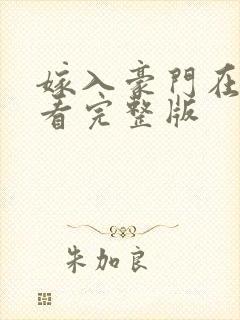 嫁入豪門在
看完整版
朱加良